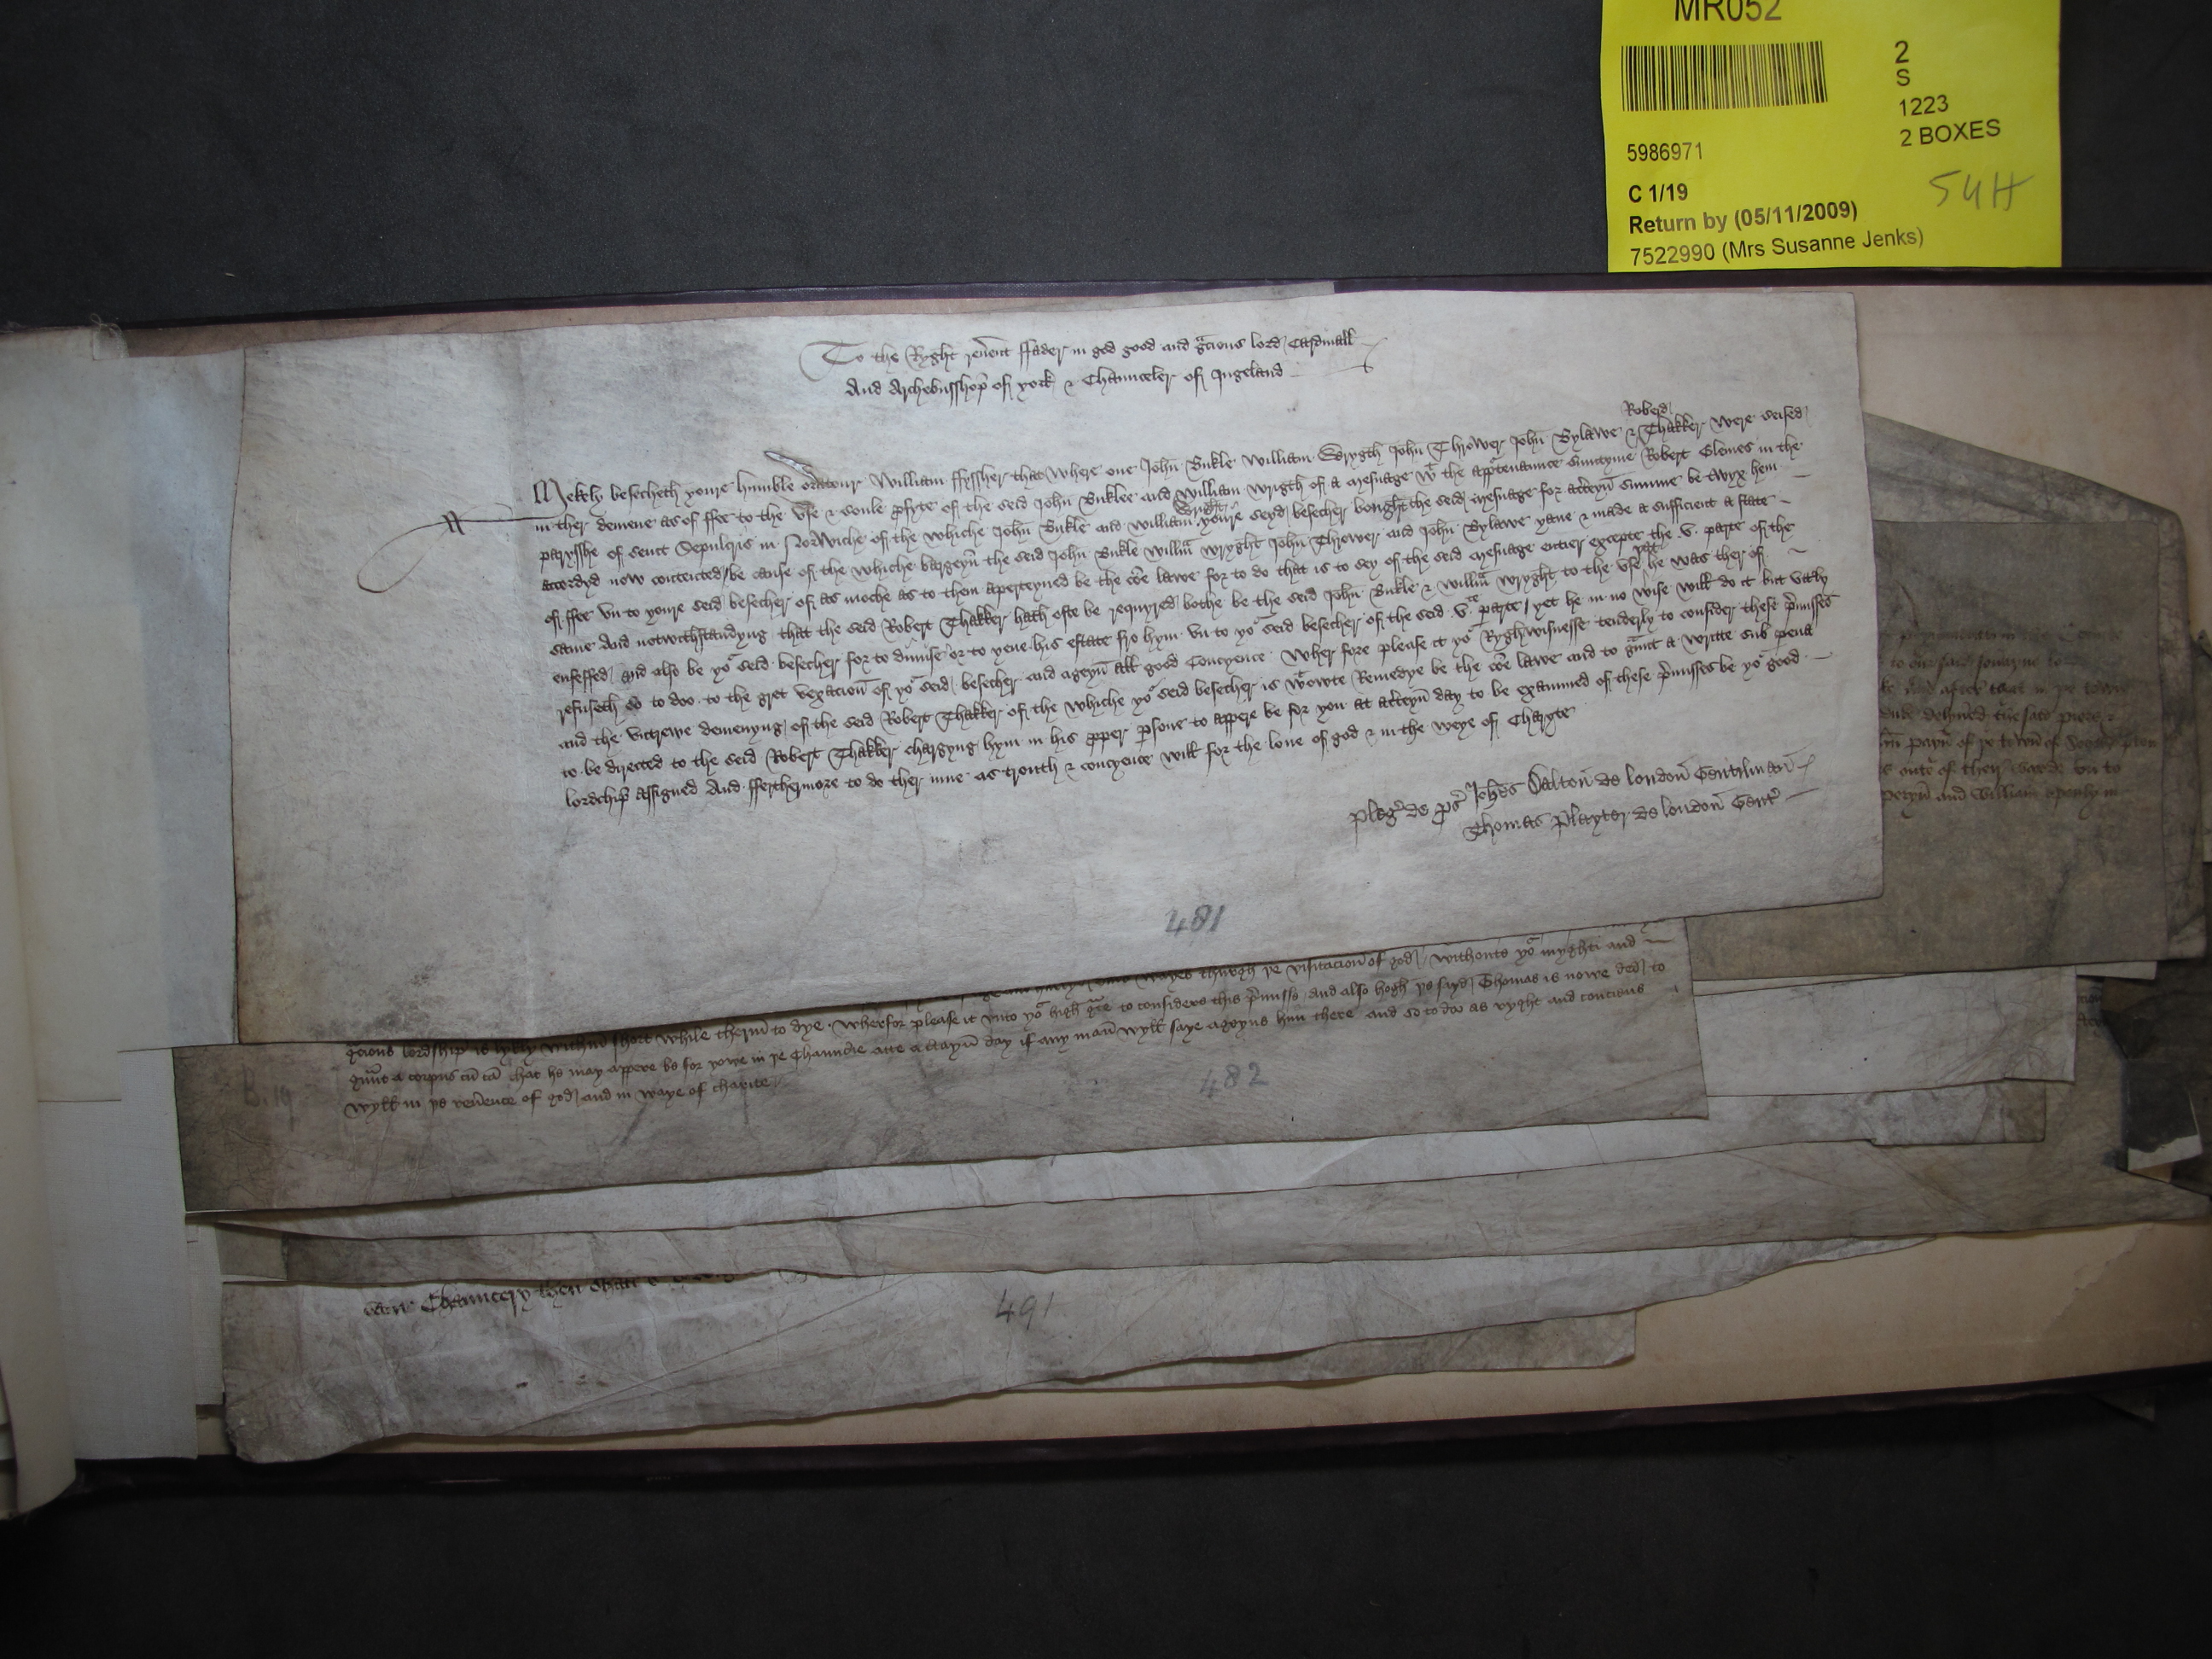 MR052
2
S
1223
2 BOXES
5986971
C 1/19
54H
Return by (05/11/2009)
7522990 (Mrs Susanne Jenks)
To the Ryght reũent ffader in god good and gũcious lord Cardinall
And Archebusshop̃ of york & Chaunceler of Ingeland
Robert
Mekely besecheth youre humble oratour William ffyssher that where one John̄ Bukle William Wrygth John̄ Thrower John̄ Bylawe & Thakker were seised
in ther demene as of ffee to the vse & soule p̃fyte of the seid John Buklee and William Wrigth of a mesuage wt the app̃tenaunce sumtyme Robert Clemes in the
Wright
parysshe of senct Sepulcris in Norwiche of the whiche John̄ Bukle and William youre seyd besecher bought the seid mesuage for a c̃teyn̄ summe be twyx hem
accordyd now contented be cause of the whiche bargeyn̄ the seid John̄ Bukle Will̃m wryght John̄ Thrower and John̄ Bylawe yaue & made a sufficient a state
of ffee vn to youre seid besecher of as moche as to them aperteyned be the cõe lawe for to do that is to sey of the seid mesuage entier excepte the v. parte of the
same And notwithstandyng that the seid Robert Thakker hath ofte be requyred bothe be the seid John̄ Bukle & Will̃m wryght to the vse he was ther of
enfeffed and also be yor seid besecher for to dimise or to yeue his estate fro hym vn to yor seid besecher of the seid v.te parte yet he in no wise will do it but vttly
refuseth so to doo to the gret vexacion̄ of yor seid besecher and ageyn̄ all good Concyence Wher fore please it yor Ryghwisnesse tenderly to consider these p̃misses
and the vntrewe demenyng of the seid Robert Thakker of the whiche yor seid besecher is wtowte Remedye be the cõe lawe and to gũnt a writte sub pena
to be directed to the seid Robert Thakker chargyng hym in his p̃per p̃sone to appere be for you at a c̃teyn̄ day to be examined of these p̃misses be yor good
lordchip̃ assigned And ffertherrmore to do ther inne as trouth & concyence will for the loue of god & in the weye of Charyte
pleg̃ de p̃s̃ Joh̃es Dalton̄ de london̄ Gentilman̄
Thomas Playter de london̄ Gent̃
481
wayes thurgh ye visitacion̄ of god withoute yor myghti and
gũcious lordship is lykly within̄ short while therin̄ to dye Wherfor please it vnto yor high gũce to considere this p̃misse and also hogh ye seyd Thomas is nowe ded to
gũnt a corpus cũ cã that he may appere be for yowe in ye Chaunc̃ie atte a c̃tayn̄ day if any man̄ wyll saye ageyns him there and so to doo as ryght and conciens
wyll in ye reũence of god and in waye of charite
B. 19
482
Chauncery then
491
to our said souayne lord
and after that in ye town
delyũed the said
of ye town̄ of
oute of their warde vn to
and William openly in